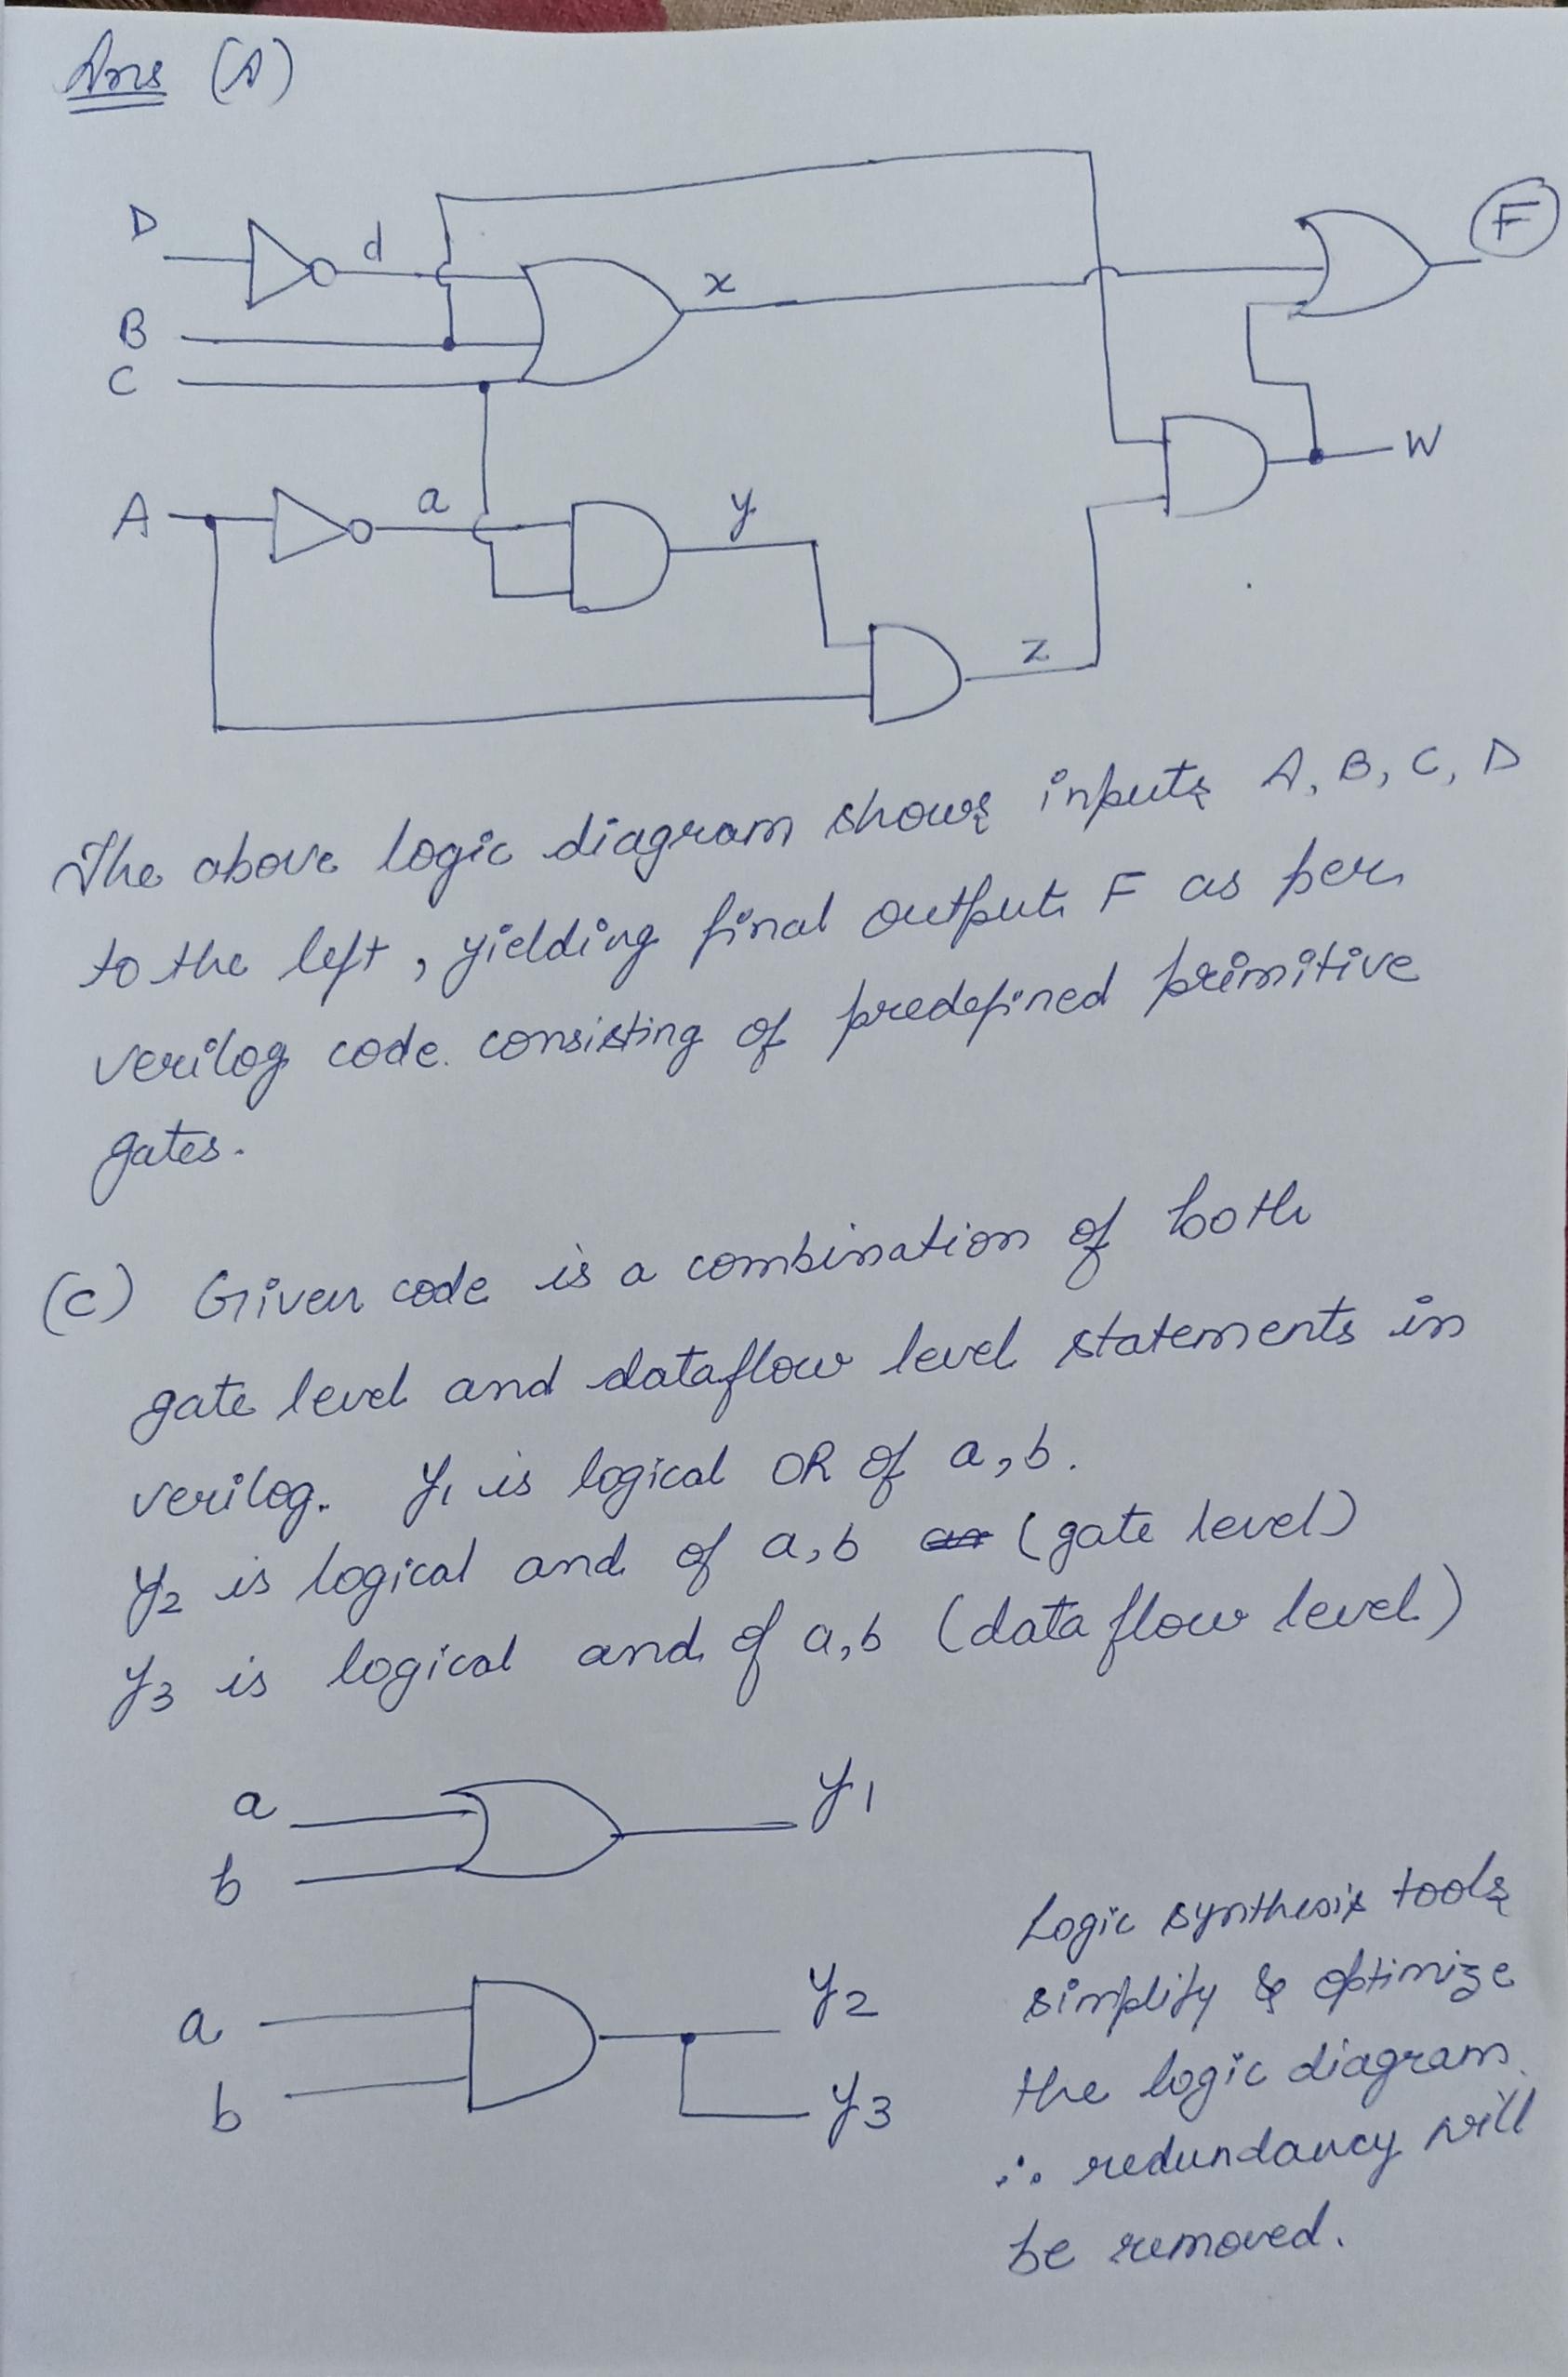 Ans (A)
D
d
B
C
x
F
A
a
y
W
z
The above logic diagram shows inputs A, B, C, D
to the left, yielding final output F as per
verilog code. consisting of predefined primitive
gates.
(c) Given code is a combination of both
gate level and dataflow level statements in
verilog. y1 is logical OR of a,b.
y2 is logical and of a,b (gate level)
y3 is logical and of a,b (data flow level)
a
b
y1
a
b
y2
y3
Logic synthesis tools
simplify & optimize
the logic diagram.
∴ redundancy will
be removed.